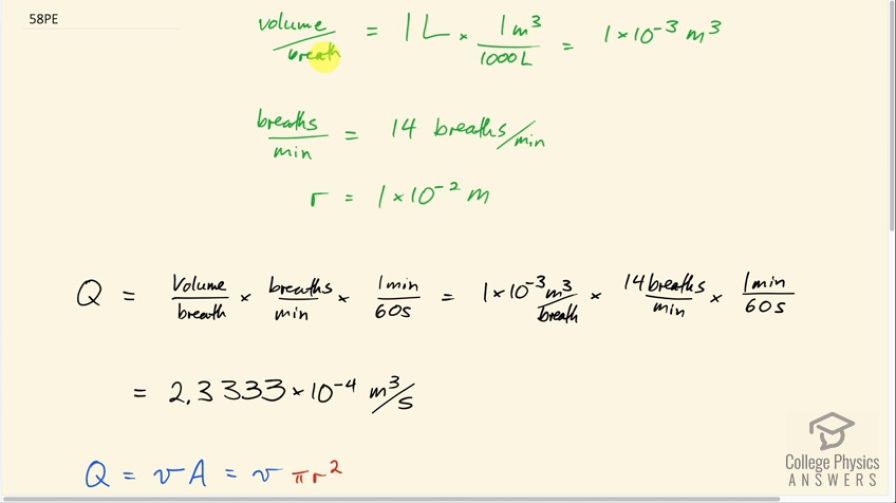 58PE
volume/breath = 1 L × 1 m³/1000 L = 1 × 10⁻³ m³
breaths/min = 14 breaths/min
r = 1 × 10⁻² m
Q = Volume/breath × breaths/min × 1 min/60 s = 1 × 10⁻³ m³/breath × 14 breaths/min × 1 min/60 s
= 2.3333 × 10⁻⁴ m³/s
Q = v A = v π r²
College Physics
ANSWERS